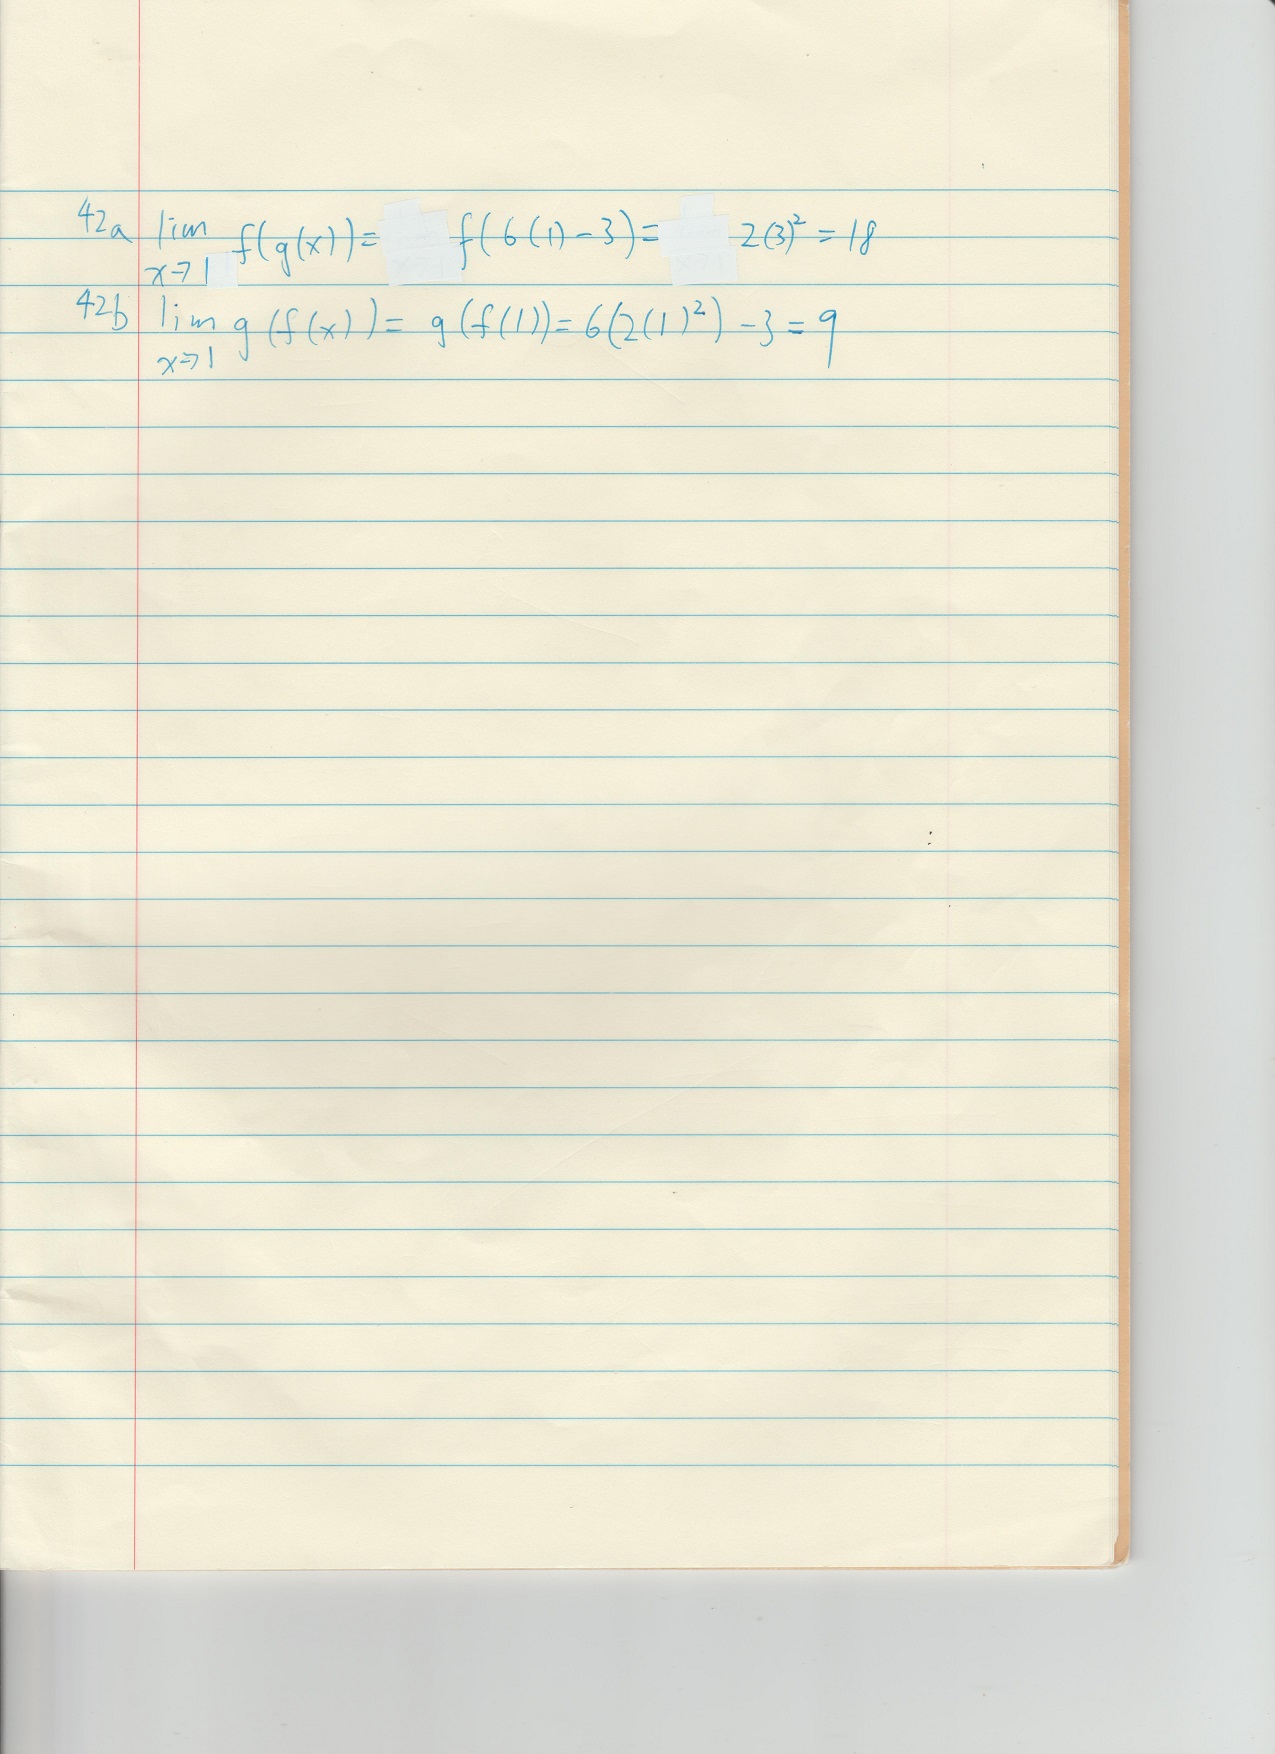 42a lim x→1 f(g(x)) = f(6(1)-3) = 2(3)² = 18
42b lim x→1 g(f(x)) = g(f(1)) = 6(2(1)²) - 3 = 9